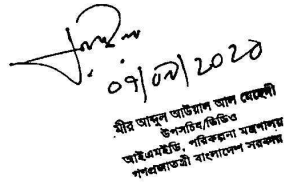 ০৭/০৯/২০২০
মীর আব্দুল আউয়াল আল মেহেদী
উপসচিব/ডিডিও
আইএমইডি, পরিকল্পনা মন্ত্রণালয়
গণপ্রজাতন্ত্রী বাংলাদেশ সরকার